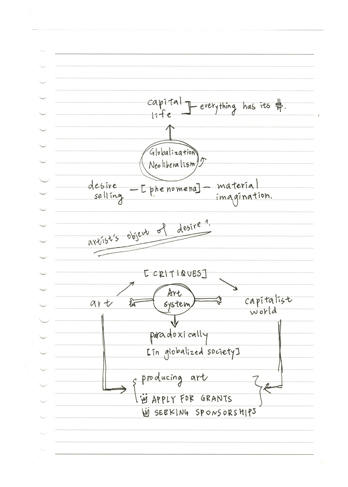 capital
life
everything has its $.
Globalization
Neoliberalism
desire
selling
[phenomena]
material
imagination.
artist's object of desire?
[CRITIQUES]
art
Art
system
capitalist
world
paradoxically
[in globalized society]
producing art
APPLY FOR GRANTS
SEEKING SPONSORSHIPS